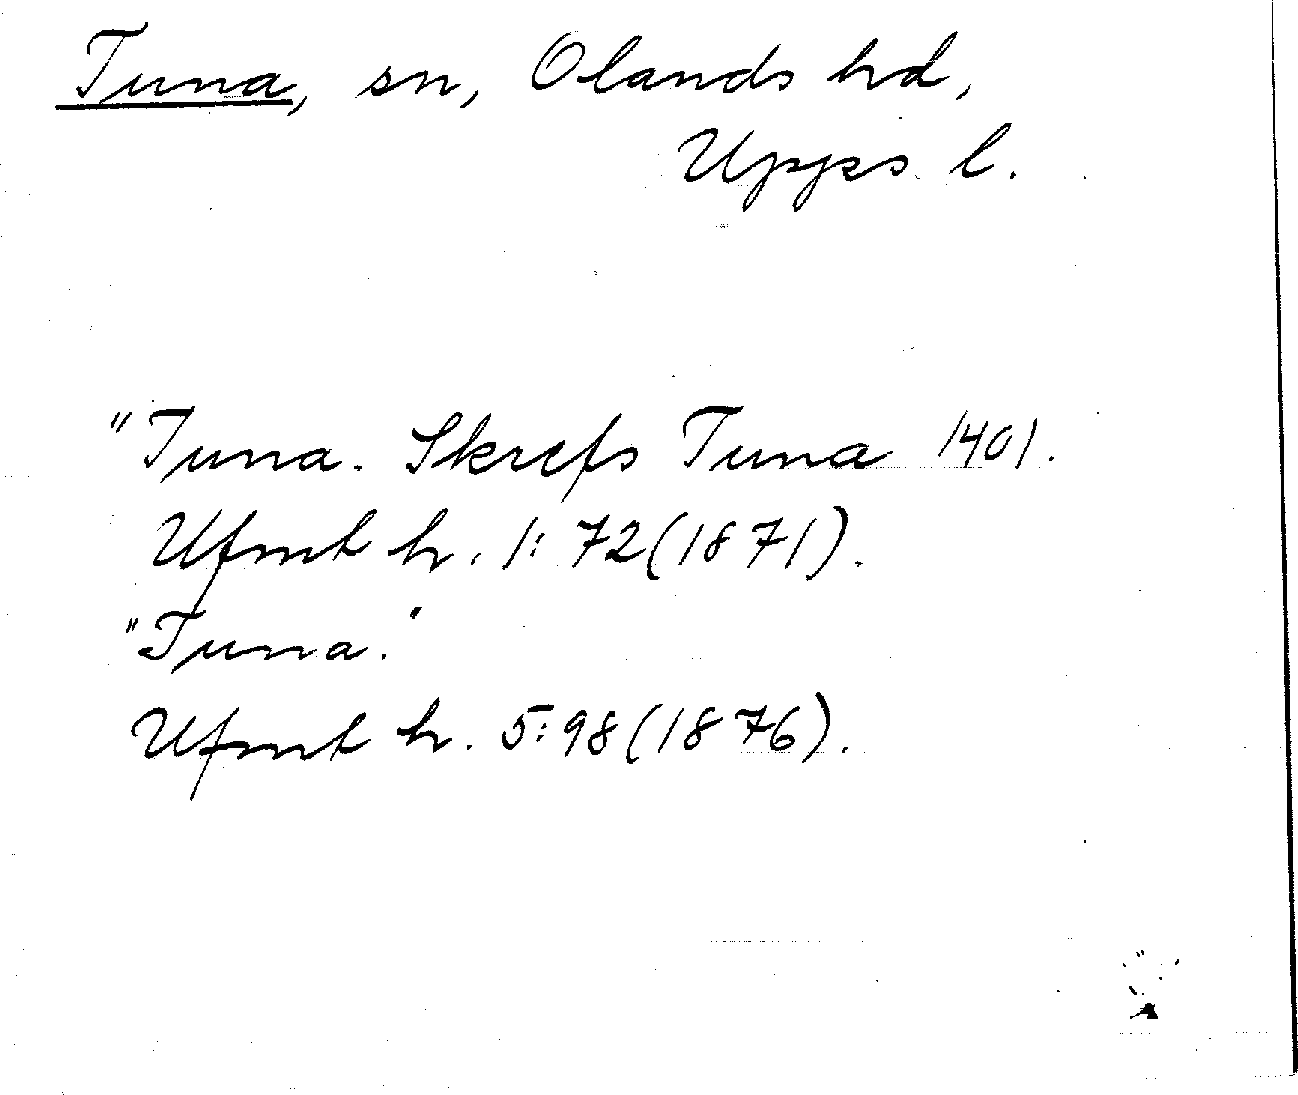 Tuna, sn, Olands hd,
Upps. l.
"Tuna. Skrefs Tuna 1401.
Ufmt h. 1:72(1871).
"Tuna."
Ufmt h. 5:98(1876).